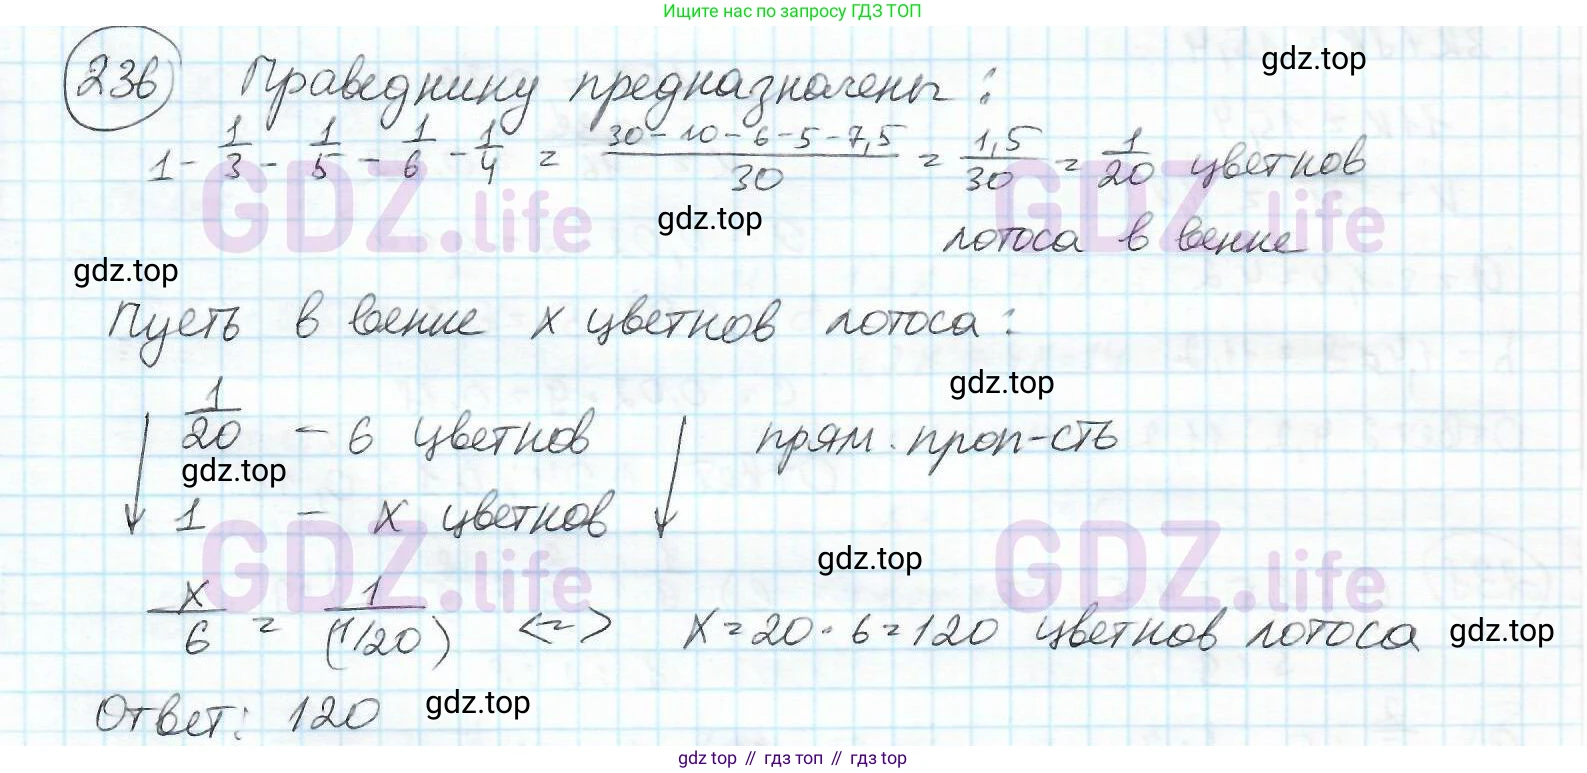 Ищите нас по запросу ГДЗ ТОП
236 Праведнику предназначены:
gdz.top
1 - 1/3 - 1/5 - 1/6 - 1/4 = (30 - 10 - 6 - 5 - 7,5)/30 = 1,5/30 = 1/20 цветков
GDZ.life GDZ.life
gdz.top
лотоса в венке
gdz.top
Пусть в венке x цветков лотоса:
gdz.top
1/20 - 6 цветков прям. проп-сть
gdz.top
1 - x цветков
GDZ.life GDZ.life
gdz.top
x/6 = 1/(1/20) <=> x = 20 · 6 = 120 цветков лотоса
gdz.top
Ответ: 120
gdz.top
gdz top // гдз топ // gdz top